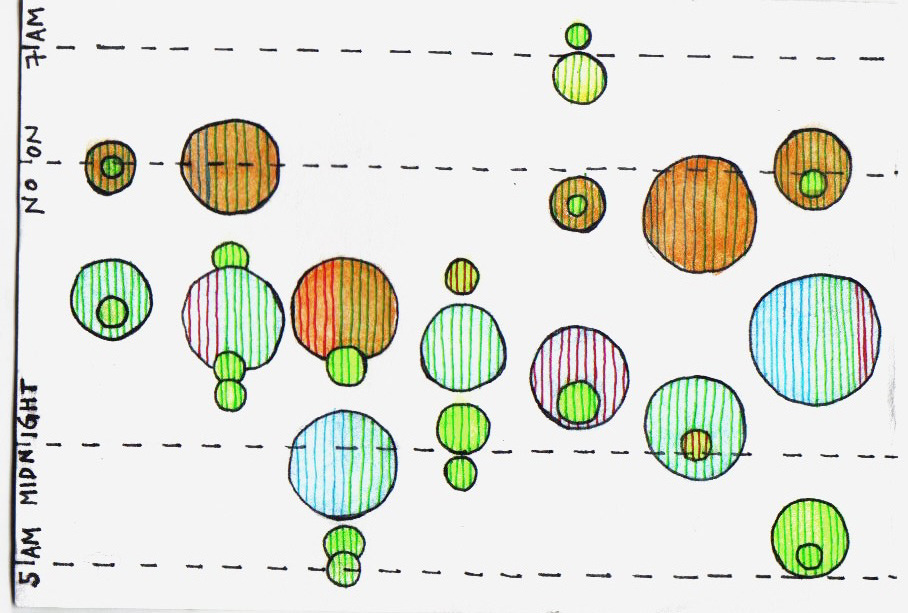 7 AM
NOON
MIDNIGHT
5 AM